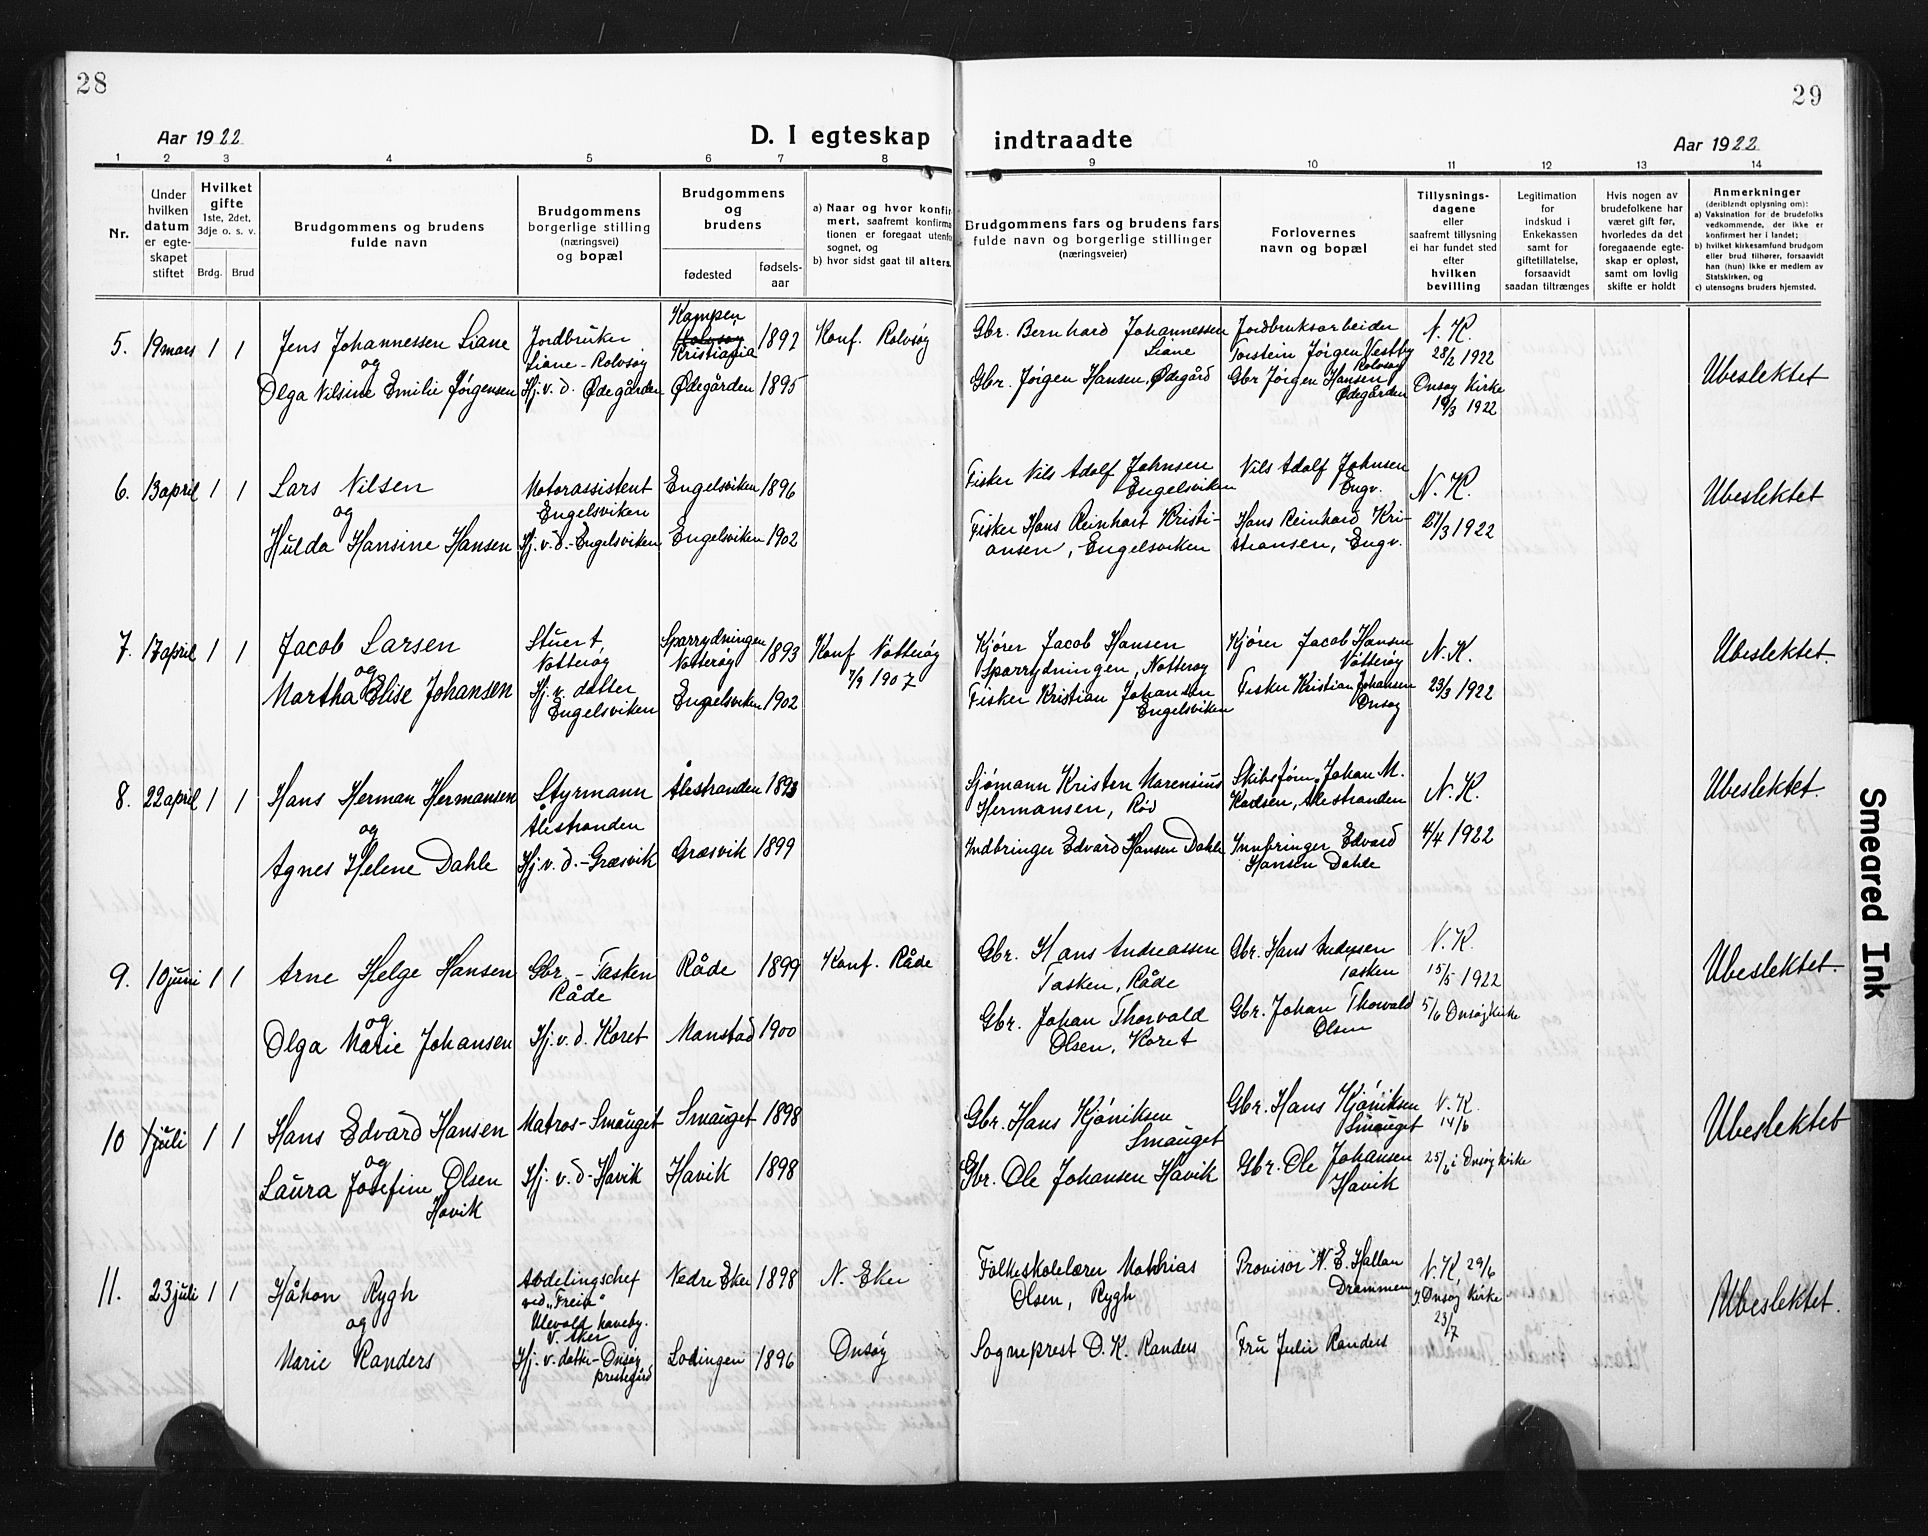 28
Aar 1922
D. I egteskap
1 2 3 4 5 6 7 8
Nr.
Under hvilken datum er egte-skapet stiftet
Hvilket gifte
1ste, 2det, 3dje o. s. v.
Brdg. Brud
Brudgommens og brudens fulde navn
Brudgommens borgerlige stilling (næringsvei) og bopæl
Brudgommens og brudens
fødested
fødsels-aar
a) Naar og hvor konfir-
mert, saafremt konfirma-
tionen er foregaat utenfo
sognet, og
b) hvor sidst gaat til alters.
5. 19 mars 1 1 Jens Johannessen Liane
og
Olga Nilsine Emilie Jørgensen
Jordbruker
Liane - Rolvsøy
Hj. v. d. Ødegården
Kampen
Rolvsøy
Kristiania
1892
Ødegården 1895
Konf. Rolvsøy
6. 13 april 1 1 Lars Nilsen
og
Hulda Hansine Hansen
Motorassistent
Engelsviken
Hj. v. d. - Engelsviken
Engelsviken 1896
Engelsviken 1902
7. 17 april 1 1 Jacob Larsen
og
Martha Elise Johansen
Stuert,
Nøtterøy
Hj. v. datter
Engelsviken
Sparrydningen
Nøtterøy 1893
Engelsviken 1902
Konf Nøtterøy
1907
8. 22 april 1 1 Hans Herman Hermansen
og
Agnes Helene Dahle
Styrmann
Ålestranden
Hj. v. d. - Græsvik
Ålestranden 1893
Græsvik 1899
9. 10 juni 1 1 Arne Helge Hansen
og
Olga Marie Johansen
Gbr. - Tasken
Råde
Hj. v. d. Koret
Råde 1899
Manstad 1900
Konf. Råde
10 1 juli 1 1 Hans Edvard Hansen
og
Laura Josefine Olsen
Havik
Matros - Smauget
Hj. v. d - Havik
Smauget 1898
Havik 1898
11. 23 juli 1 1 Håkon Rygh
og
Marie Randers
Avdelingschef
ved "Freia"
Ulevold haveby.
V. Aker
Hj. v. datter - Onsøy
prestegård
Nedre Eker 1898
Lødingen 1896
N. Eker
Onsøy
29
indtraadte
Aar 1922
9 10 11 12 13 14
Brudgommens fars og brudens fars
fulde navn og borgerlige stillinger
(næringsveier)
Forlovernes
navn og bopæl
Tillysnings-
dagene
eller
saafremt tillysning
ei har fundet sted
efter
hvilken
bevilling
Legitimation
for
indskud i
Enkekassen
samt for
giftetillatelse,
forsaavidt
saadan tiltrænges
Hvis nogen av
brudefolkene har
været gift før,
hvorledes da det
foregaaende egte-
skap er opløst,
samt om lovlig
skifte er holdt
Anmerkninger
(deriblandt oplysning om):
a) Vaksination for de brudefolks
vedkommende, der ikke er
konfirmert her i landet;
b) hvilket kirkesamfund brudgom
eller brud tilhører, forsaavidt
han (hun) ikke er medlem av
Statskirken, og
c) utensogns bruders hjemsted.
Gbr. Bernhard Johannessen
Liane
Gbr. Jørgen Hansen, Ødegård
Jordbruksarbeider
Torstein Jørgen Vestby
Rolvsøy
Gbr Jørgen Hansen
Ødegården
N. K.
28/2 1922
Onsøy Kirke
19/3 1922
Ubeslektet
Fisker Nils Adolf Johnsen
Engelsviken
Fisker Hans Reinhart Kristi-
ansen, Engelsviken
Nils Adolf Johnsen
Engv.
Hans Reinhard Kri-
stiansen, Engv.
N. K.
27/3 1922
Ubeslektet
Kjører Jacob Hansen
Sparrydningen, Nøtterøy
Fisker Kristian Johansen
Engelsviken
Kjører Jacob Hansen
Nøtterøy
Fisker Kristian Johansen
Onsøy
N. K.
23/3 1922
Ubeslektet.
Sjømann Kristen Marensius
Hermansen, Rød
Indbringer Edvard Hansen Dahle
Skibsfører Johan M.
Karlsen, Ålestranden
Innbringer Edvard
Hansen Dahle
N. K.
4/4 1922
Ubeslektet.
Gbr. Hans Andreassen
Tasken, Råde
Gbr. Johan Thorvald
Olsen, Koret
Gbr. Hans Andersen
Tasken
Gbr. Johan Thorvald
Olsen
N. K.
15/5 1922
5/6 Onsøy kirke
Ubeslektet.
Gbr. Hans Kjøniksen
Smauget
Gbr. Ole Johansen Havik
Gbr. Hans Kjøniksen
Smauget
Gbr. Ole Johansen
Havik
N. K.
14/6
25/6 i Onsøy kirke
Ubeslektet
Folkeskolelærer Mathias
Olsen, Rygh
Sogneprest D. K. Randers
Provisor N. E. Hallan
Drammen
Fru Julie Randers
N. K. 29/6
I Onsøy kirke
23/7
Ubeslektet.
Smeared Ink